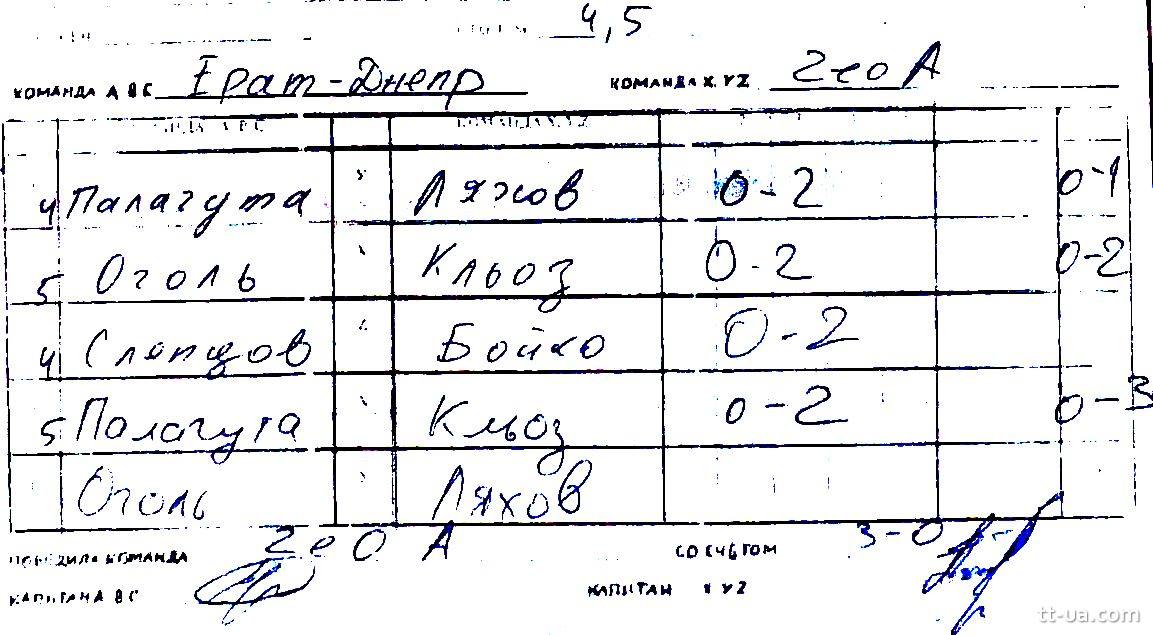 4,5
КОМАНДА А В С Ерат-Днепр КОМАНДА X, Y Z 2eo A
КОМАНДА X, Y, Z
4 Палагута Ляхов 0-2 0-1
5 Оголь Кльоз 0-2 0-2
4 Слепцов Бойко 0-2
5 Палагута Кльоз 0-2 0-3
Оголь Ляхов
ПОБЕДИЛА КОМАНДА 2eO A СО СЧЕТОМ 3-0
КАПИТАН А В С КАПИТАН X Y Z
tt-ua.com